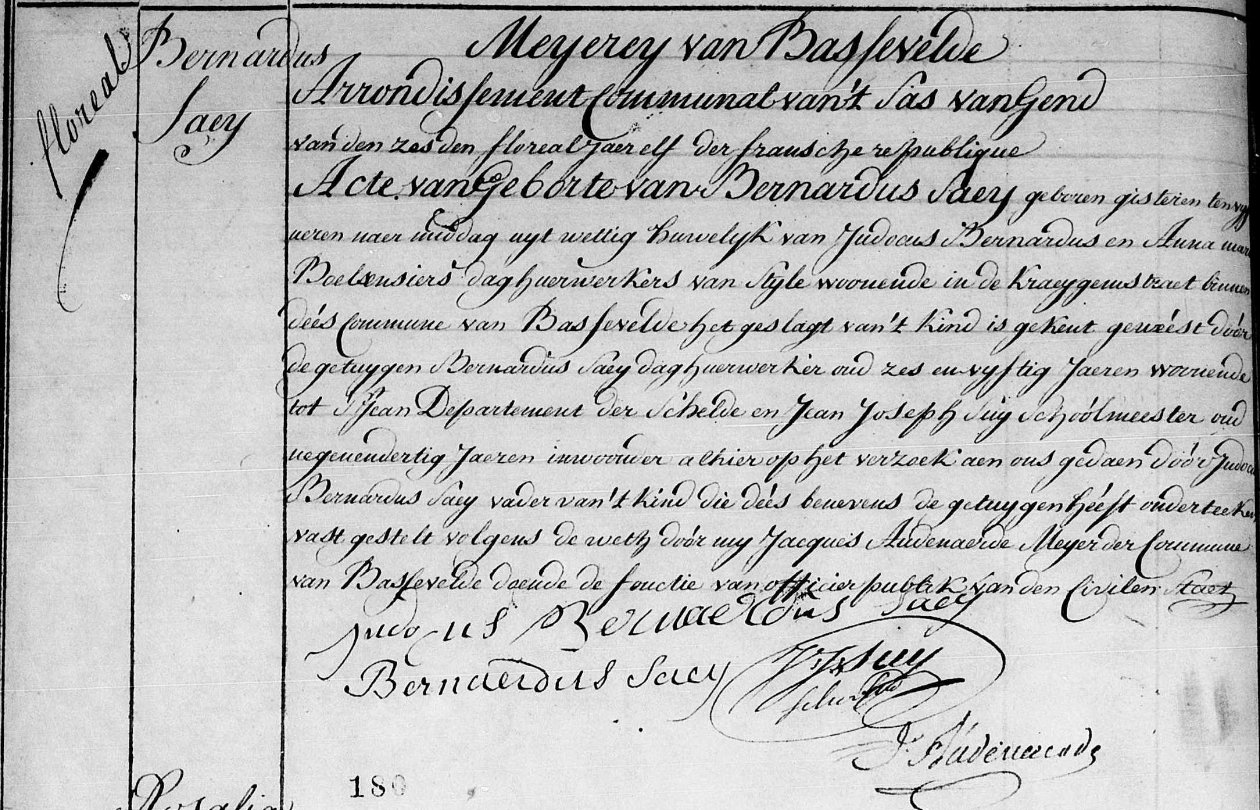 floreal
Bernardus
Saey
Meyerey van Bassevelde
Arrondissement Communal van't Sas van Gend
van den zesden floreal jaer elf der fransche republique
Acte van Geborte van Bernardus Saey geboren gisteren ten vyf
ueren naer middag uyt wettig huwelyk van Judocus Bernardus en Anna mari
Boelensiers daghuerwerkers van Style woonende in de Kraeygemstraet binnen
deés Commune van Bassevelde het geslagt van't kind is gekent geweést dóór
de getuygen Bernardus Saey daghuerwerker oud zes en vyftig Jaeren woonende
tot St Jean Departement der Schelde en Jean Joseph Suy Schoólmeester oud
negenendertig Jaeren inwoonder alhier op het verzoek aen ons gedaen dóór Judocu
Bernardus Saey vader van't kind die deés benevens de getuygen heéft onderteeken
vast gestelt volgens de weth dóór my Jacques Audenaerde Meyer der Commune
van Bassevelde doende de fonctie van officier publik van den Civilen Staet
judocus Bernaerdus Saey
Bernaerdus Saey
JJ Suy
J. Audenaerde
180
Rosalia